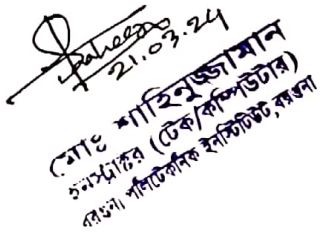 21.03.24
মোঃ শাহিনুজ্জামান
ইনস্ট্রাক্টর (টেক/কম্পিউটার)
বরগুনা পলিটেকনিক ইনস্টিটিউট, বরগুনা